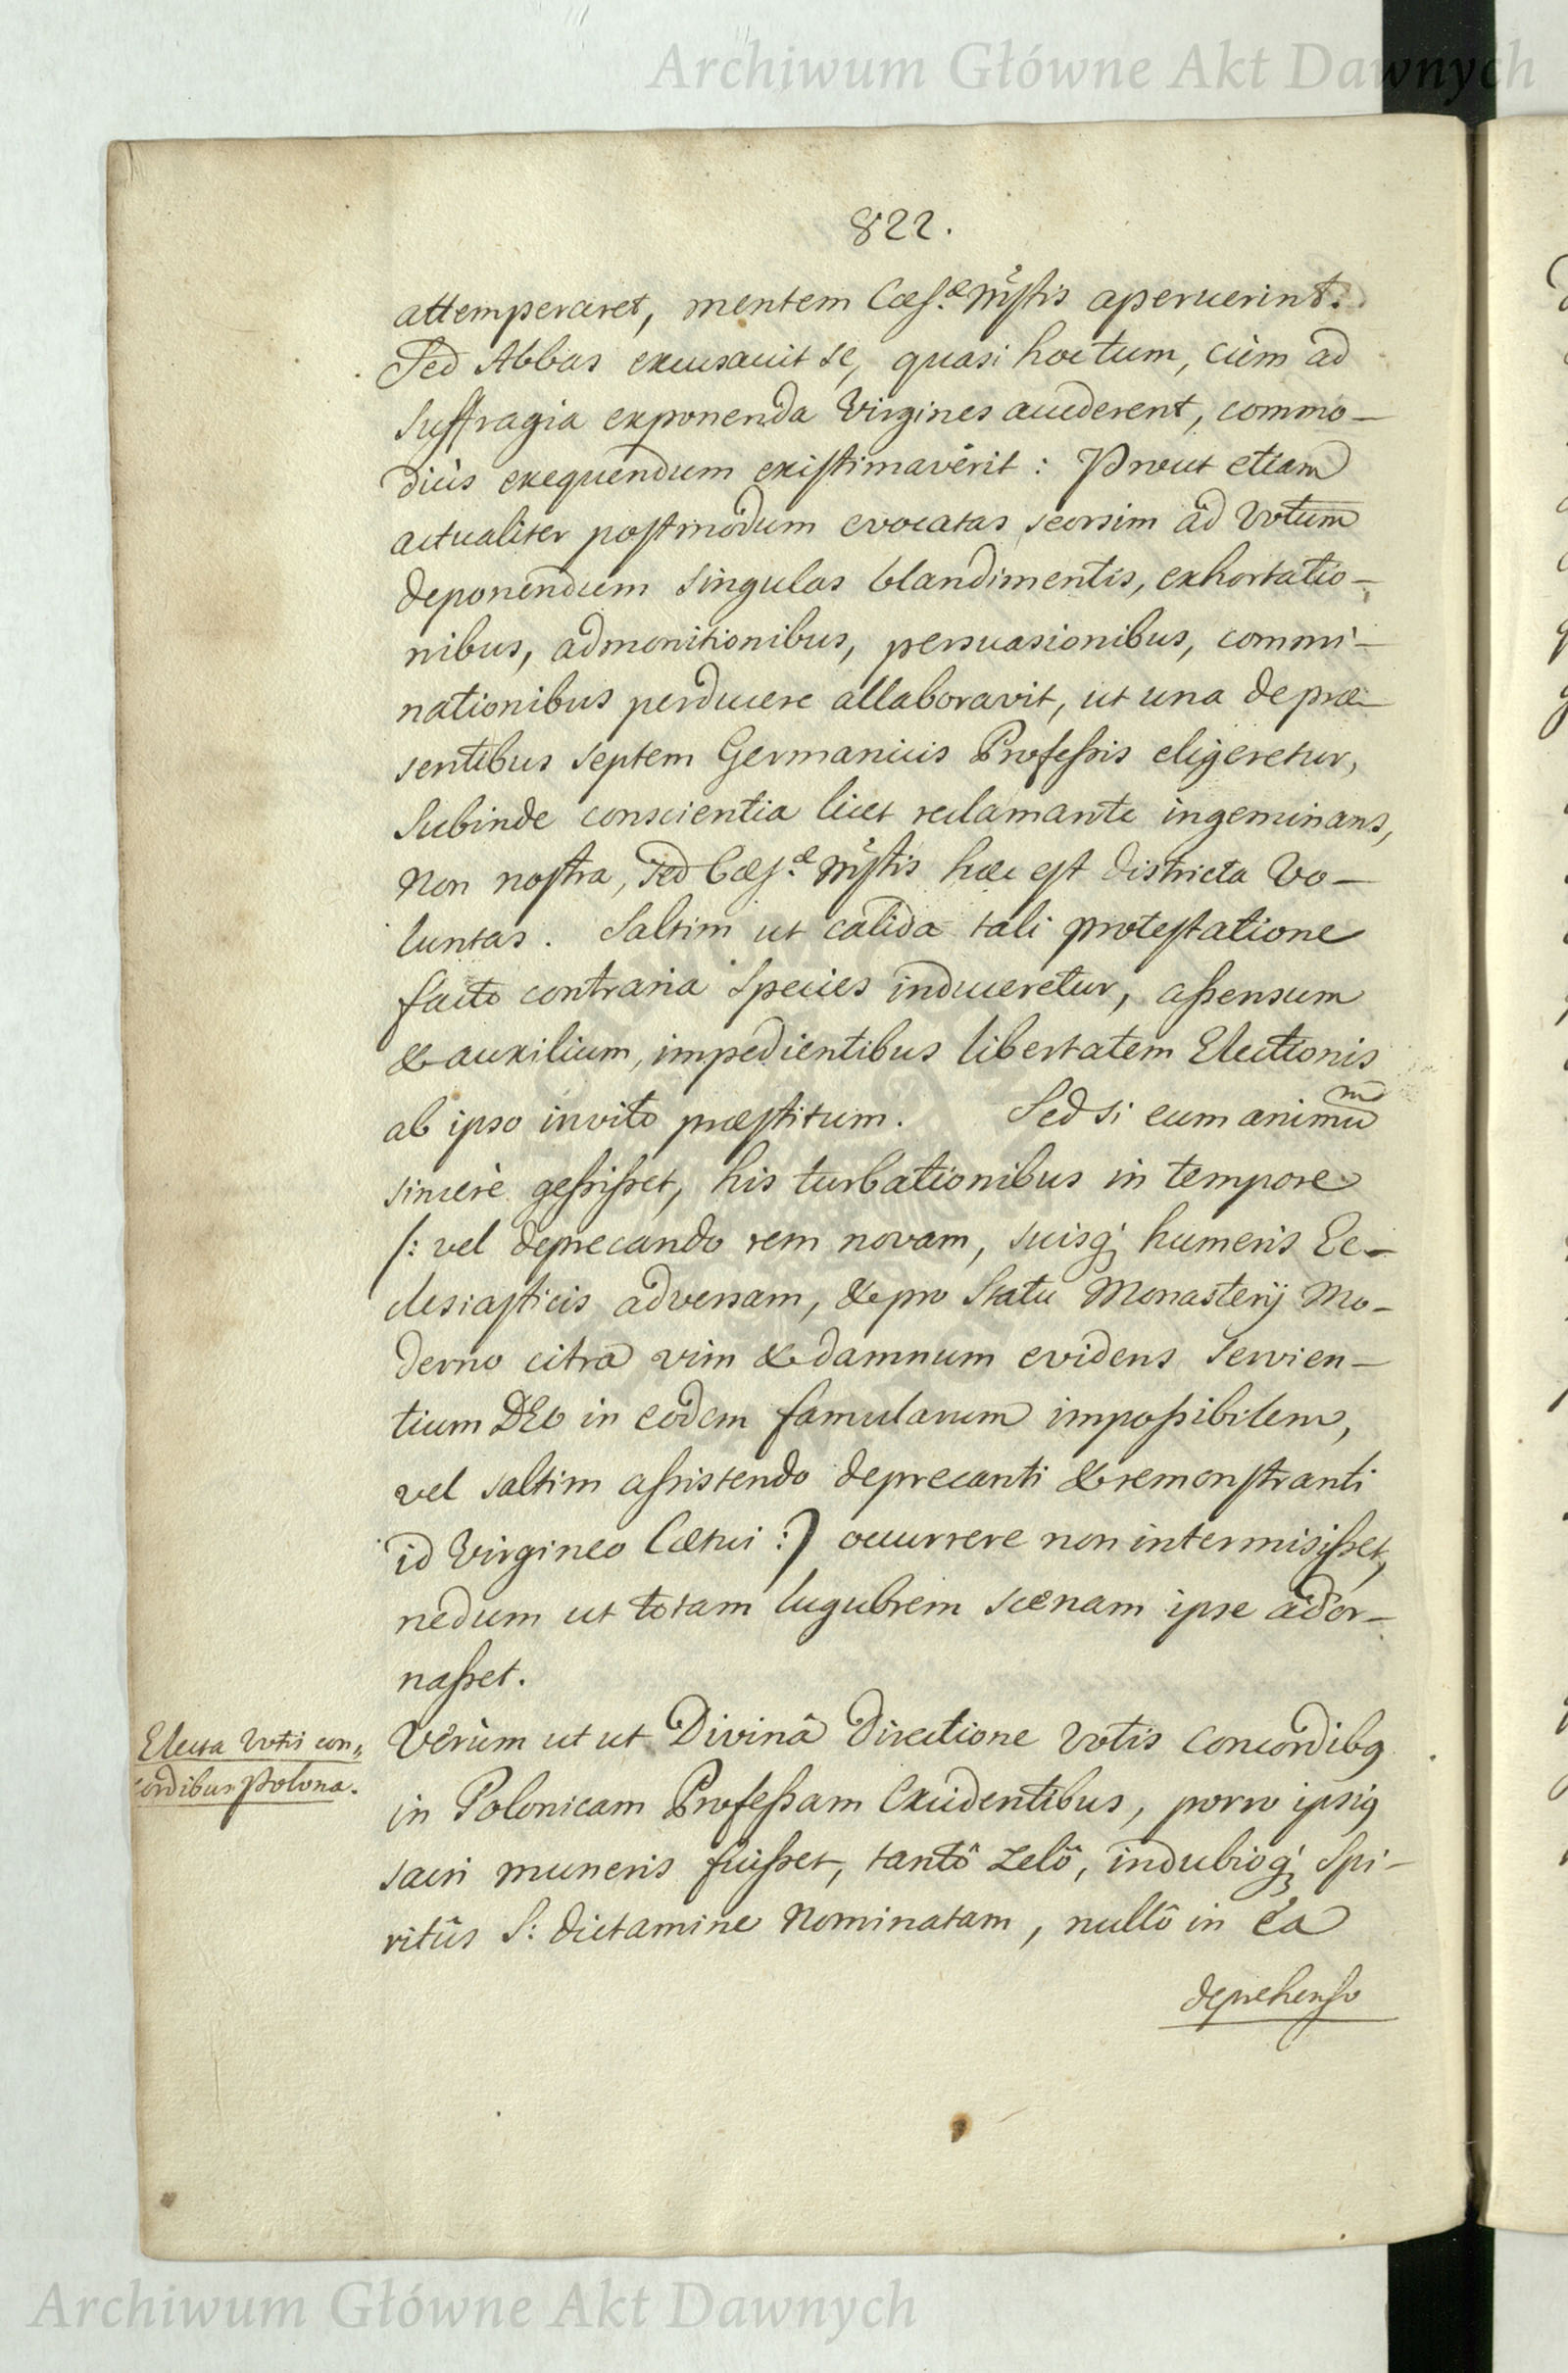 Archiwum Główne Akt Dawnych
822.
attemperaret, mentem Cæs.æ Mṡtis aperuerint.
Sed Abbas excusavit se, quasi hoc tum, cùm ad
suffragia exponenda Virgines accederent, commo-
diùs exequendum existimavérit: Prout etiam
actualiter postmodum evocatas seorsim ad Votum
deponendum singulas blandimentis, exhortatio-
nibus, admonitionibus, persuasionibus, commi-
nationibus perducere allaboravit, ut una de præ-
sentibus septem Germanicis Professis eligeretur,
Subinde conscientia licet reclamante ingeminans,
Non nostra, sed Cæs.æ Mṡtis hæc est districta Vo-
luntas. Saltim ut calida tali protestatione
facto contraria species induceretur, assensum
& auxilium, impedientibus libertatem Electionis
ab ipso invito præstitum. Sed si eum animum
sincerè gessisset, his turbationibus in tempore
/: vel deprecando rem novam, suisq; humeris Ec-
clesiasticis adversam, & pro Statu Monasterij Mo-
derno citra vim & damnum evidens servien-
tium DEO in eodem famularum impossibilem,
vel saltim assistendo deprecanti & remonstranti
id Virgineo Cætui :) occurrere non intermisisset,
nedum ut totam lugubrem scænam ipse ador-
nasset.
Electa Votis con„
cordibus Polona.
Verùm ut ut Divinâ Directione Votis Concordibq
in Polonicam Professam Excidentibus, porro ipsiq
sacri muneris fuisset, tantô zelô, indubioq; Spi-
ritûs S: dictamine Nominatam, nullô in Ea
deprehenso
Archiwum Główne Akt Dawnych